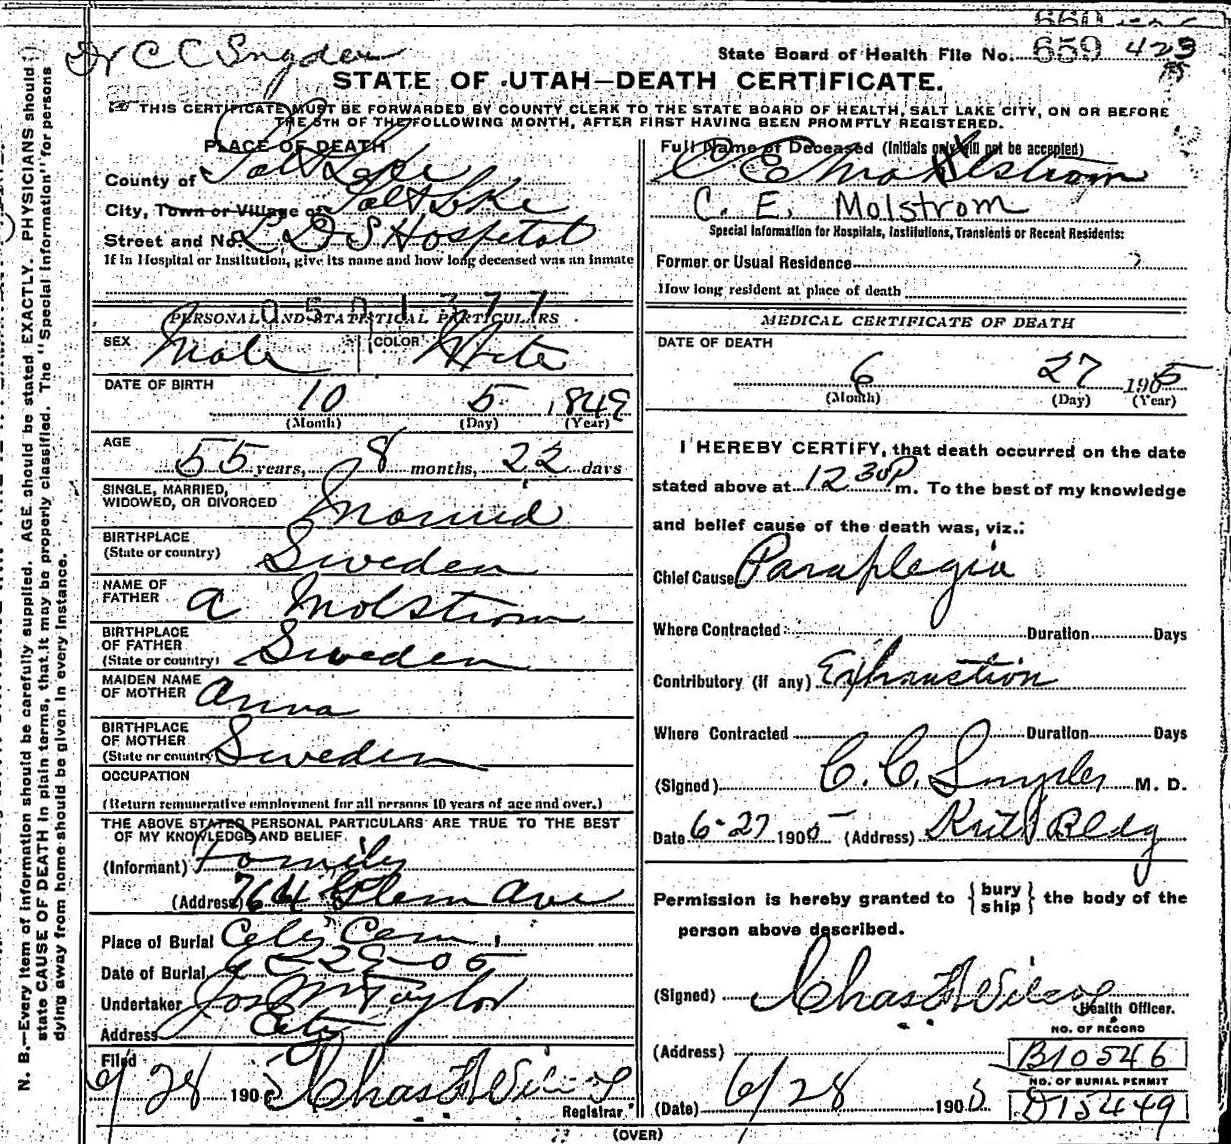 Dr C C Snyder
State Board of Health File No. 659 423
STATE OF UTAH—DEATH CERTIFICATE.
THIS CERTIFICATE MUST BE FORWARDED BY COUNTY CLERK TO THE STATE BOARD OF HEALTH, SALT LAKE CITY, ON OR BEFORE
THE 5TH OF THE FOLLOWING MONTH, AFTER FIRST HAVING BEEN PROMPTLY REGISTERED.
N. B.—Every item of information should be carefully supplied. AGE should be stated EXACTLY. PHYSICIANS should
state CAUSE OF DEATH in plain terms, that it may be properly classified. The "Special Information" for persons
dying away from home should be given in every instance.
PLACE OF DEATH
County of Salt Lake
City, Town or Village of Salt Lke
Street and No. L D S Hospital
If in Hospital or Institution, give its name and how long deceased was an inmate
0501377
PERSONAL AND STATISTICAL PARTICULARS
SEX Male COLOR White
DATE OF BIRTH
10 5 1849
(Month) (Day) (Year)
AGE
55 years, 8 months, 22 days
SINGLE, MARRIED,
WIDOWED, OR DIVORCED Married
BIRTHPLACE
(State or country) Sweden
NAME OF
FATHER a Molstrom
BIRTHPLACE
OF FATHER
(State or country) Sweden
MAIDEN NAME
OF MOTHER Anna
BIRTHPLACE
OF MOTHER
(State or country Sweden
OCCUPATION
(Return remunerative employment for all persons 10 years of age and over.)
THE ABOVE STATED PERSONAL PARTICULARS ARE TRUE TO THE BEST
OF MY KNOWLEDGE AND BELIEF.
(Informant) Family
(Address) 764 Glen Ave
Place of Burial City Cem
Date of Burial 6-29-05
Undertaker Jos M Taylor
Address City
Filed
6/28 1905 Chas F Wilcox
Registrar.
Full Name of Deceased (Initials only will not be accepted)
C E Mahlstrom
C. E. Molstrom
Special Information for Hospitals, Institutions, Transients or Recent Residents:
Former or Usual Residence
How long resident at place of death
MEDICAL CERTIFICATE OF DEATH
DATE OF DEATH
6 27 1905
(Month) (Day) (Year)
I HEREBY CERTIFY, that death occurred on the date
stated above at 12 30 P m. To the best of my knowledge
and belief cause of the death was, viz.:
Chief Cause Paraplegia
Where Contracted Duration Days
Contributory (if any) Exhaustion
Where Contracted Duration Days
(Signed) C. C. Snyder M. D.
Date 6-27 1905 (Address) Bldg
Permission is hereby granted to { bury ship } the body of the
person above described.
(Signed) Chas F Wilcox
Health Officer.
NO. OF RECORD
(Address) B10546
NO. OF BURIAL PERMIT
(Date) 6/28 1905 D15449
(OVER)